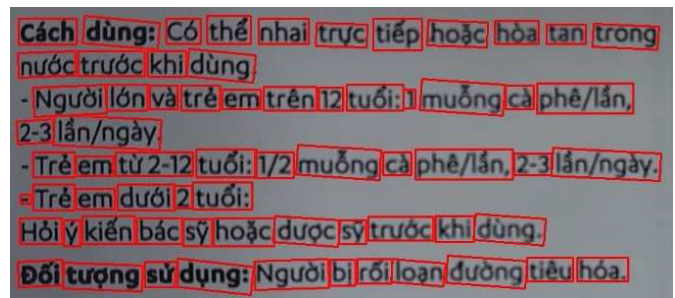 Cách dùng: Có thể nhai trực tiếp hoặc hòa tan trong
nước trước khi dùng.
- Người lớn và trẻ em trên 12 tuổi: 1 muỗng cà phê/lần,
2-3 lần/ngày.
- Trẻ em từ 2-12 tuổi: 1/2 muỗng cà phê/lần, 2-3 lần/ngày.
- Trẻ em dưới 2 tuổi:
Hỏi ý kiến bác sỹ hoặc dược sỹ trước khi dùng.
Đối tượng sử dụng: Người bị rối loạn đường tiêu hóa.